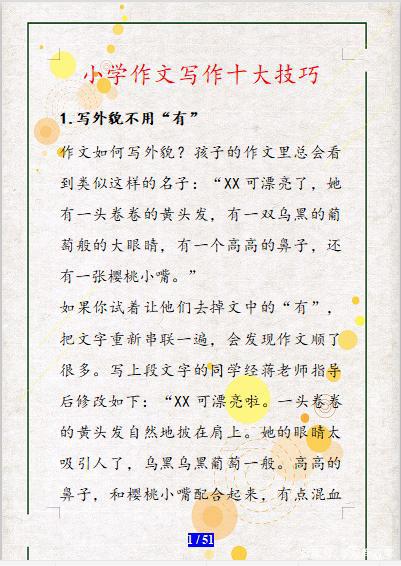 小学作文写作十大技巧
1.写外貌不用“有”
作文如何写外貌？孩子的作文里总会看
到类似这样的名子：“XX 可漂亮了，她
有一头卷卷的黄头发，有一双乌黑的葡
萄般的大眼睛，有一个高高的鼻子，还
有一张樱桃小嘴。”
如果你试着让他们去掉文中的“有”，
把文字重新串联一遍，会发现作文顺了
很多。写上段文字的同学经蒋老师指导
后修改如下：“XX 可漂亮啦。一头卷卷
的黄头发自然地披在肩上。她的眼睛太
吸引人了，乌黑乌黑葡萄一般。高高的
鼻子，和樱桃小嘴配合起来，有点混血
1 / 51